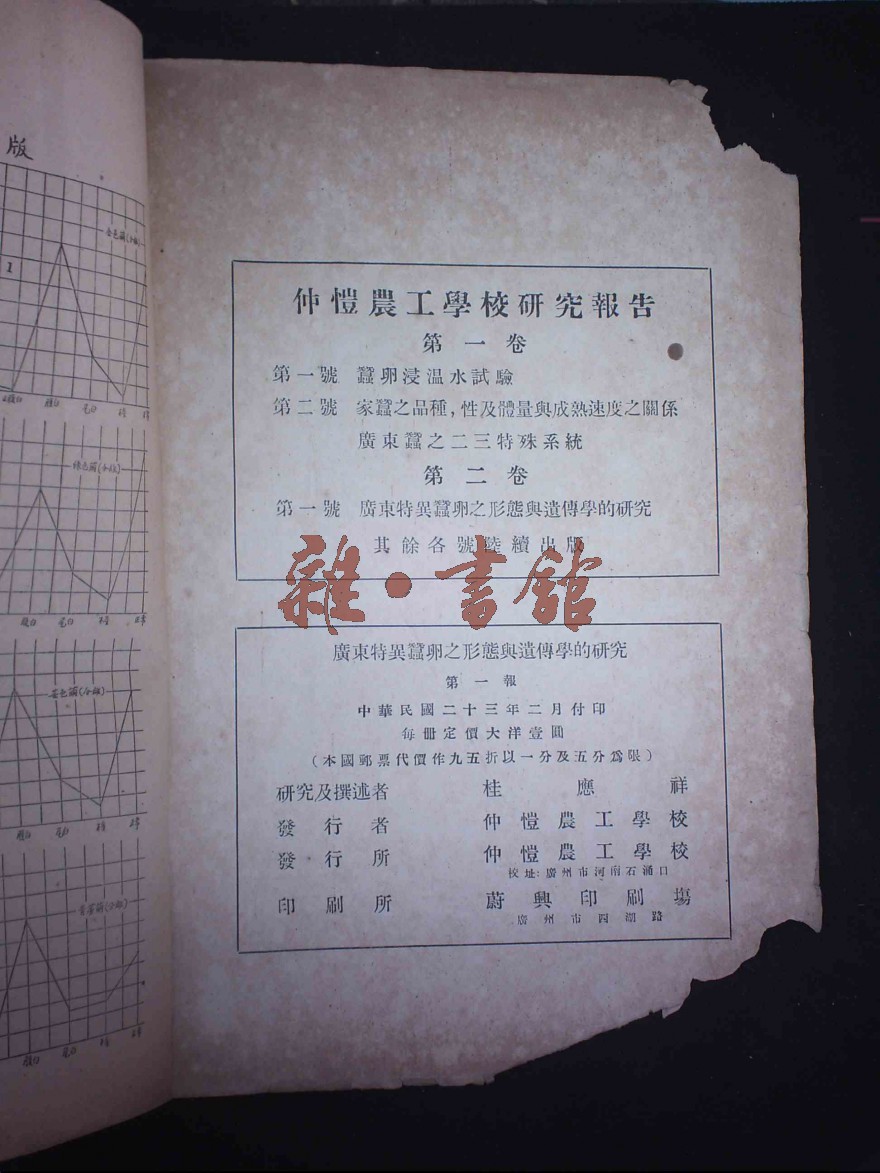 版
仲愷農工學校研究報告
第一卷
第一號 蠶卵浸温水試驗
第二號 家蠶之品種，性及體量與成熟速度之關係
廣東蠶之二三特殊系統
第二卷
第一號 廣東特異蠶卵之形態與遺傳學的研究
其餘各號陸續出版
雜·書館
廣東特異蠶卵之形態與遺傳學的研究
第一報
中華民國二十三年二月付印
每冊定價大洋壹圓
（本國郵票代價作九五折以一分及五分爲限）
研究及撰述者 桂應祥
發行者 仲愷農工學校
發行所 仲愷農工學校
校址：廣州市河南石涌口
印刷所 蔚興印刷塲
廣州市四湖路